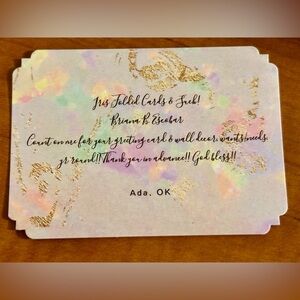 Iris Folded Cards & Such!
Briana B. Escobar
Count on me for your greeting card & wall decor wants/needs,
yr round!! Thank you in advance!! God bless!!
Ada, OK